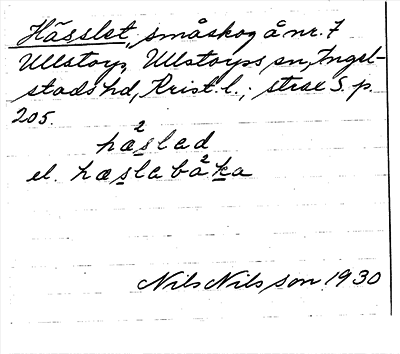 Hässlet, småskog å nr. 7
Ullstorp, Ullstorps sn, Ingel-
stads hd, Krist. l.; strax S. p.
205.
hæ²slad
el. hæslabå²ka
Nils Nilsson 1930